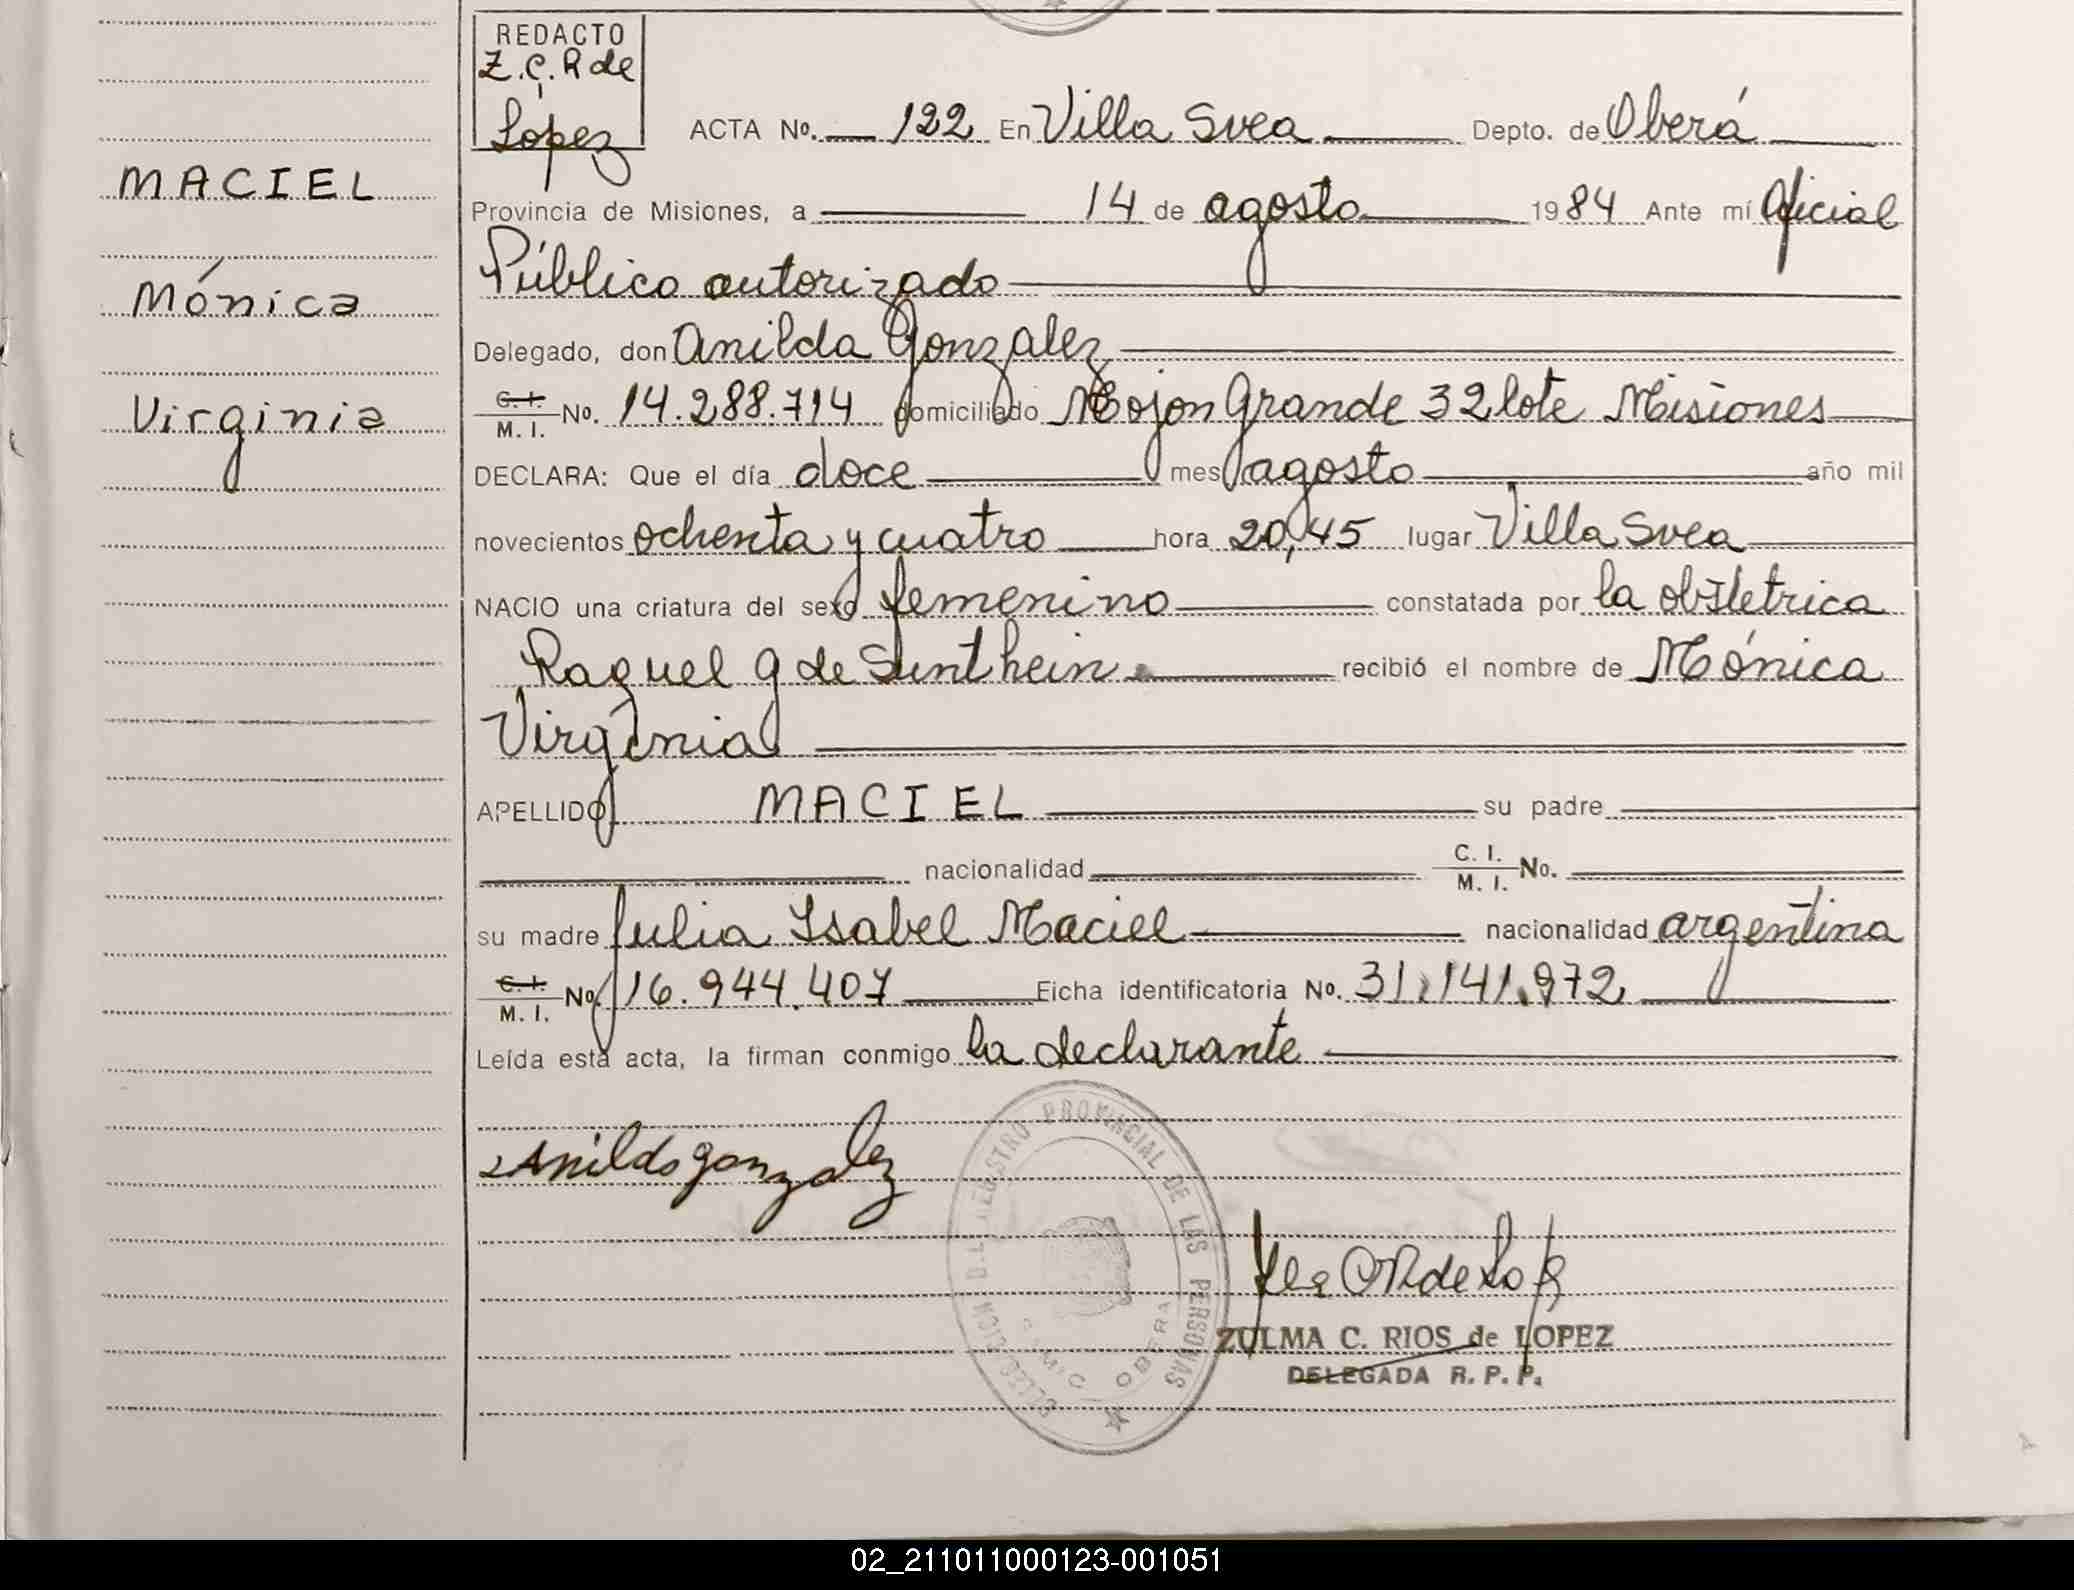 REDACTO
Z.C.R de
Lopez
ACTA No. 122 En Villa Svea Depto. de Oberá
MACIEL
Provincia de Misiones, a 14 de agosto 1984 Ante mí Oficial
Público autorizado
Mónica
Delegado, don Anilda Gonzalez
C. I. M. I. No. 14.288.714 domiciliado Mojon Grande 32 lote Misiones
Virginia
DECLARA: Que el día doce mes agosto año mil
novecientos ochenta y cuatro hora 20,45 lugar Villa Svea
NACIO una criatura del sexo femenino constatada por la obstetrica
Raquel G de Sunthein recibió el nombre de Mónica
Virginia
APELLIDO MACIEL su padre
nacionalidad C. I. M. I. No.
su madre Julia Isabel Maciel nacionalidad argentina
C. I. M. I. No. 16.944.407 Ficha identificatoria No. 31.141.972
Leída esta acta, la firman conmigo la declarante
Anilda gonzalez
REGISTRO PROVINCIAL DE LAS PERSONAS
OBERA
ZULMA C. RIOS de LOPEZ
DELEGADA R. P. P.
02_211011000123-001051